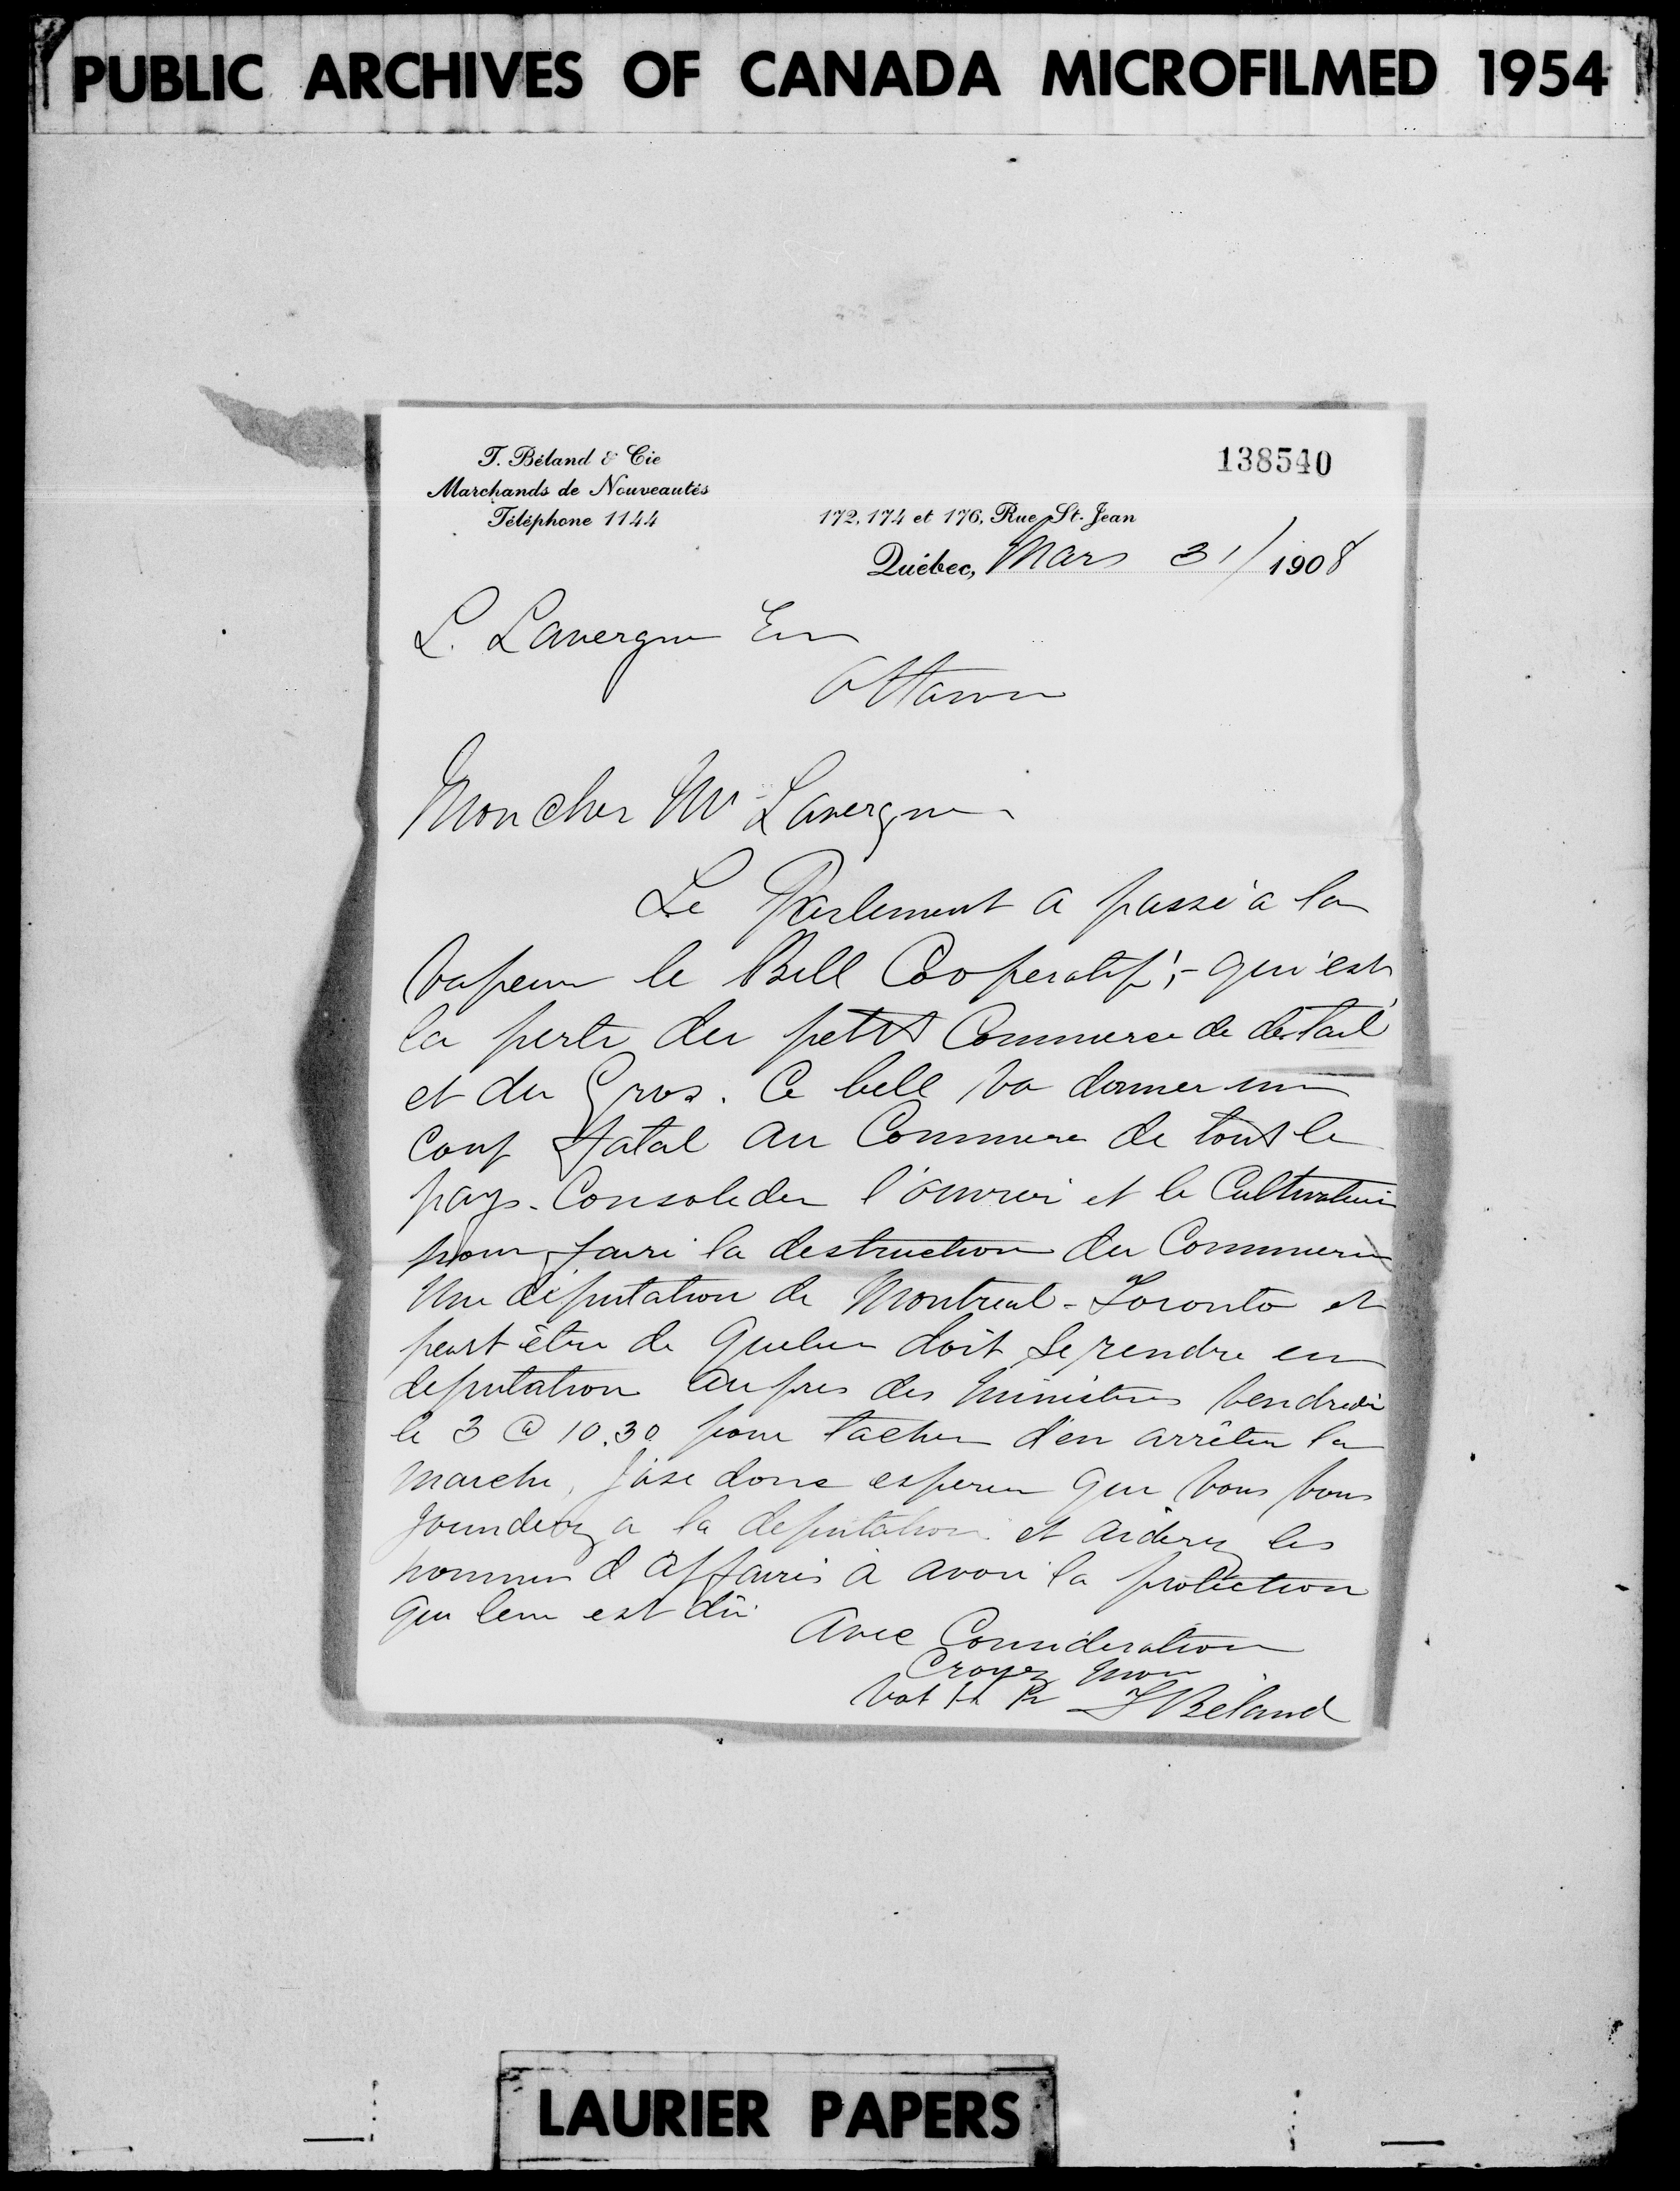 PUBLIC ARCHIVES OF CANADA MICROFILMED 1954
T. Béland & Cie
Marchands de Nouveautés
Téléphone 1144
138540
172, 174 et 176, Rue St-Jean
Québec, Mars 31/ 1908
L. Lavergne
Ottawa
Mon cher Mr Lavergne
Le Parlement a passé a la
Vapeur le Bill Cooperatif,- qui est
la perte du petit Commerce de détail
et du Gros. Ce bill va donner un
Coup fatal au Commerce de tout le
pays. Consolider l'ouvrier et le Cultivateur
pour faire la destruction du Commerce
Une députation de Montreal - Toronto et
peut être de Quebec doit se rendre en
deputation aupres des Ministres Vendredi
le 3 @ 10.30 pour tacher d'en arrêter la
marche, J'ose donc esperer que vous vous
joinderez a la deputation et aiderez les
hommes d affaires à avoir la protection
qui leur est dû
Avec Consideration
Croyez moi
T Béland
LAURIER PAPERS